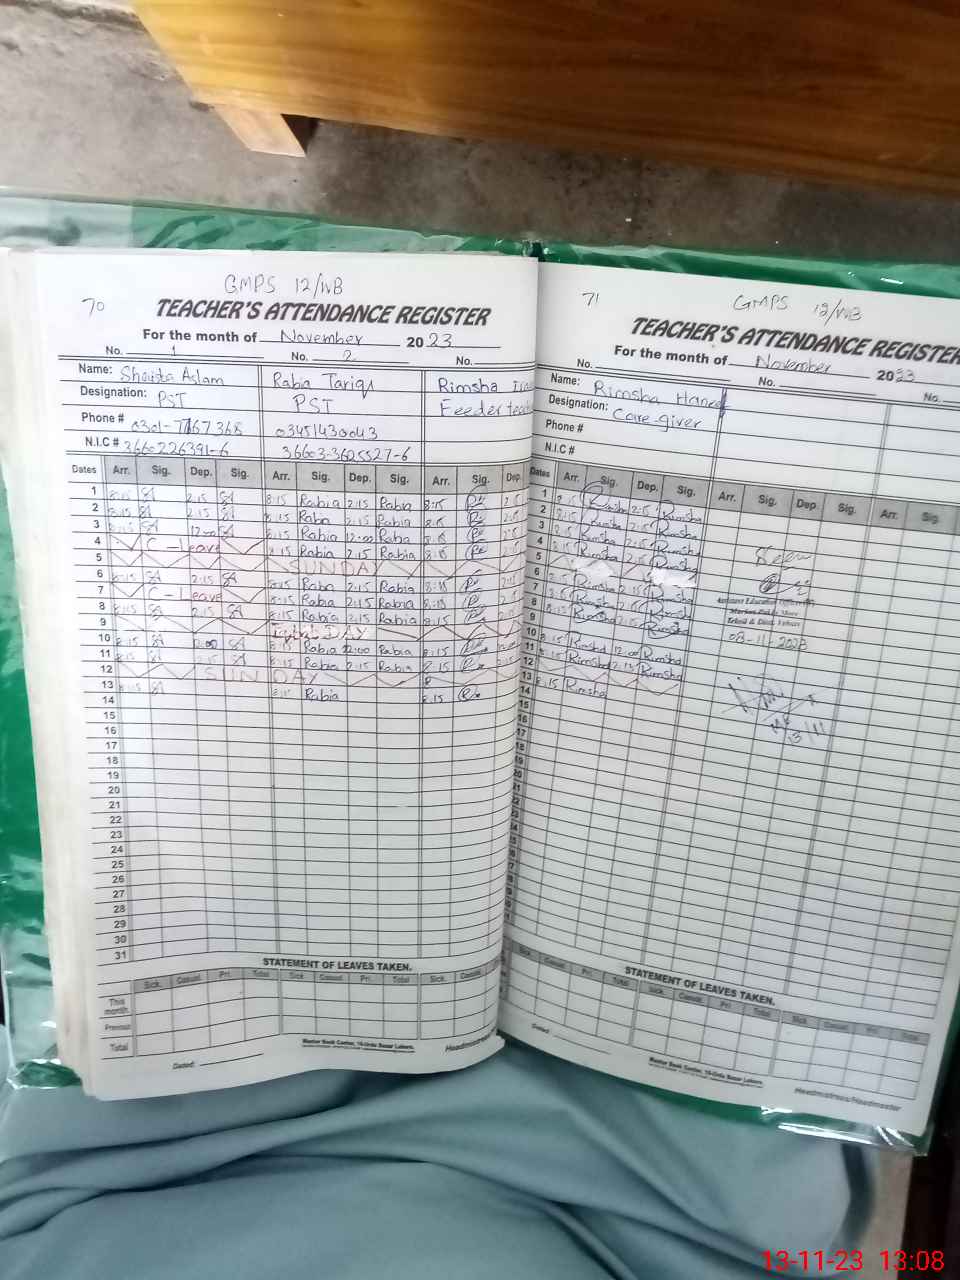 70
GMPS 12/WB
TEACHER'S ATTENDANCE REGISTER
For the month of November 2023
No. 1 No. 2 No.
Name: Shaista Aslam Rabia Tariq Rimsha
Designation: PST PST Feeder
Phone # 0301-7767368 03451430043
N.I.C # 3660226391-6 36603-3625527-6
Dates Arr. Sig. Dep. Sig. Arr. Sig. Dep. Sig. Arr. Sig. Dep.
1 8:15 SA 2:15 SA 8:15 Rabia 2:15 Rabia 8:15
2 8:15 SA 2:15 SA 8:15 Rabia 2:15 Rabia 8:15
3 8:15 SA 12:00 SA 8:15 Rabia 12:00 Rabia 8:15
4 C-Leave 8:15 Rabia 2:15 Rabia 8:15
5 SUNDAY
6 8:15 SA 2:15 SA 8:15 Rabia 2:15 Rabia 8:15
7 C-Leave 8:15 Rabia 2:15 Rabia 8:15
8 8:15 SA 2:15 SA 8:15 Rabia 2:15 Rabia 8:15
9 Iqbal DAY
10 8:15 SA 12:00 SA 8:15 Rabia 12:00 Rabia 8:15
11 8:15 SA 2:15 SA 8:15 Rabia 2:15 Rabia 8:15
12 SUNDAY
13 8:15 SA 8:15 Rabia 8:15
14
15
16
17
18
19
20
21
22
23
24
25
26
27
28
29
30
31
STATEMENT OF LEAVES TAKEN.
Sick. Casual. Pri. Total Sick Casual. Pri. Total Sick. Casual.
This month.
Previous
Total
Dated:
Master Book Center, 16-Urdu Bazar Lahore.
71
GMPS 12/WB
TEACHER'S ATTENDANCE REGISTER
For the month of November 2023
No. No. No.
Name: Rimsha Haneef
Designation: Care-giver
Phone #
N.I.C #
Dates Arr. Sig. Dep. Sig. Arr. Sig. Dep. Sig. Arr. Sig.
1 8:15 Rimsha 2:15 Rimsha
2 8:15 Rimsha 2:15 Rimsha
3 8:15 Rimsha Rimsha
4 8:15 Rimsha 2:15 Rimsha
5
6 8:15 Rimsha 2:15 Rimsha
7 8:15 Rimsha 2:15 Rimsha
8 8:15 Rimsha Rimsha
9
10 8:15 Rimsha 12:00 Rimsha
11 8:15 Rimsha 2:15 Rimsha
12
13 8:15 Rimsha
14
15
16
17
18
19
20
21
22
23
24
25
26
Seen
Assistant Education Officer
Tehsil & Distt. Vehari
08-11-2023
STATEMENT OF LEAVES TAKEN.
Sick. Casual. Pri. Total Sick. Casual. Pri. Total Sick. Casual. Pri. Total
Dated:
Master Book Center, 16-Urdu Bazar Lahore.
Headmistress/Headmaster
13-11-23 13:08